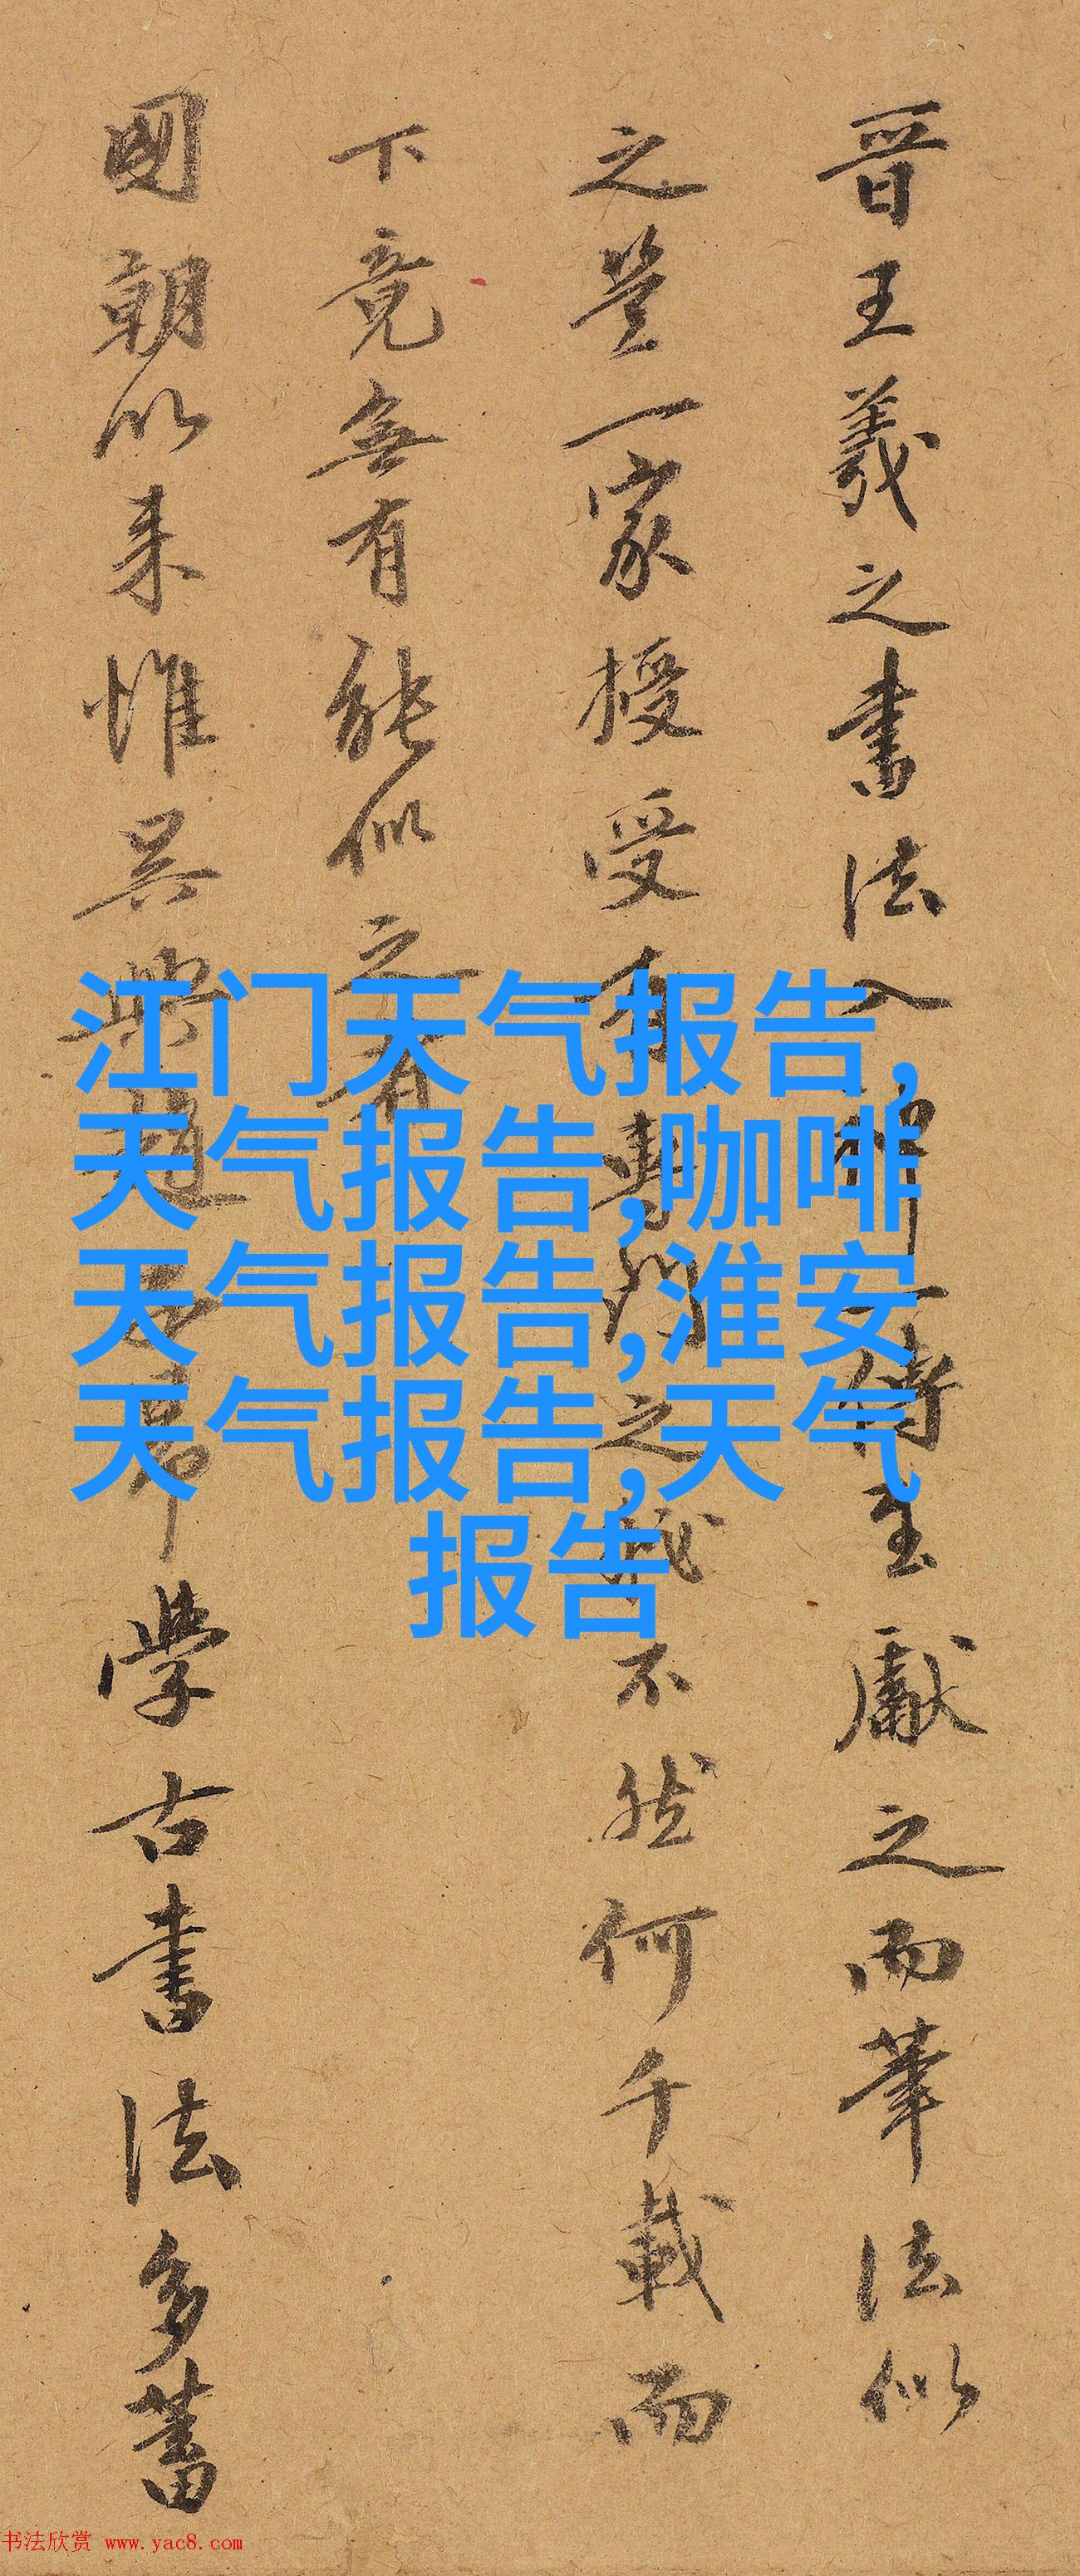 晋王羲之書法入神一傳至獻之而筆法似
之豈一家授受有專門之不然何千載而
下竟無有能似之者
國朝以来惟吴興趙昂學古書法多蓄
江门天气报告,
天气报告,咖啡
天气报告,淮安
天气报告,天气
报告
书法欣赏 www.yac8.com